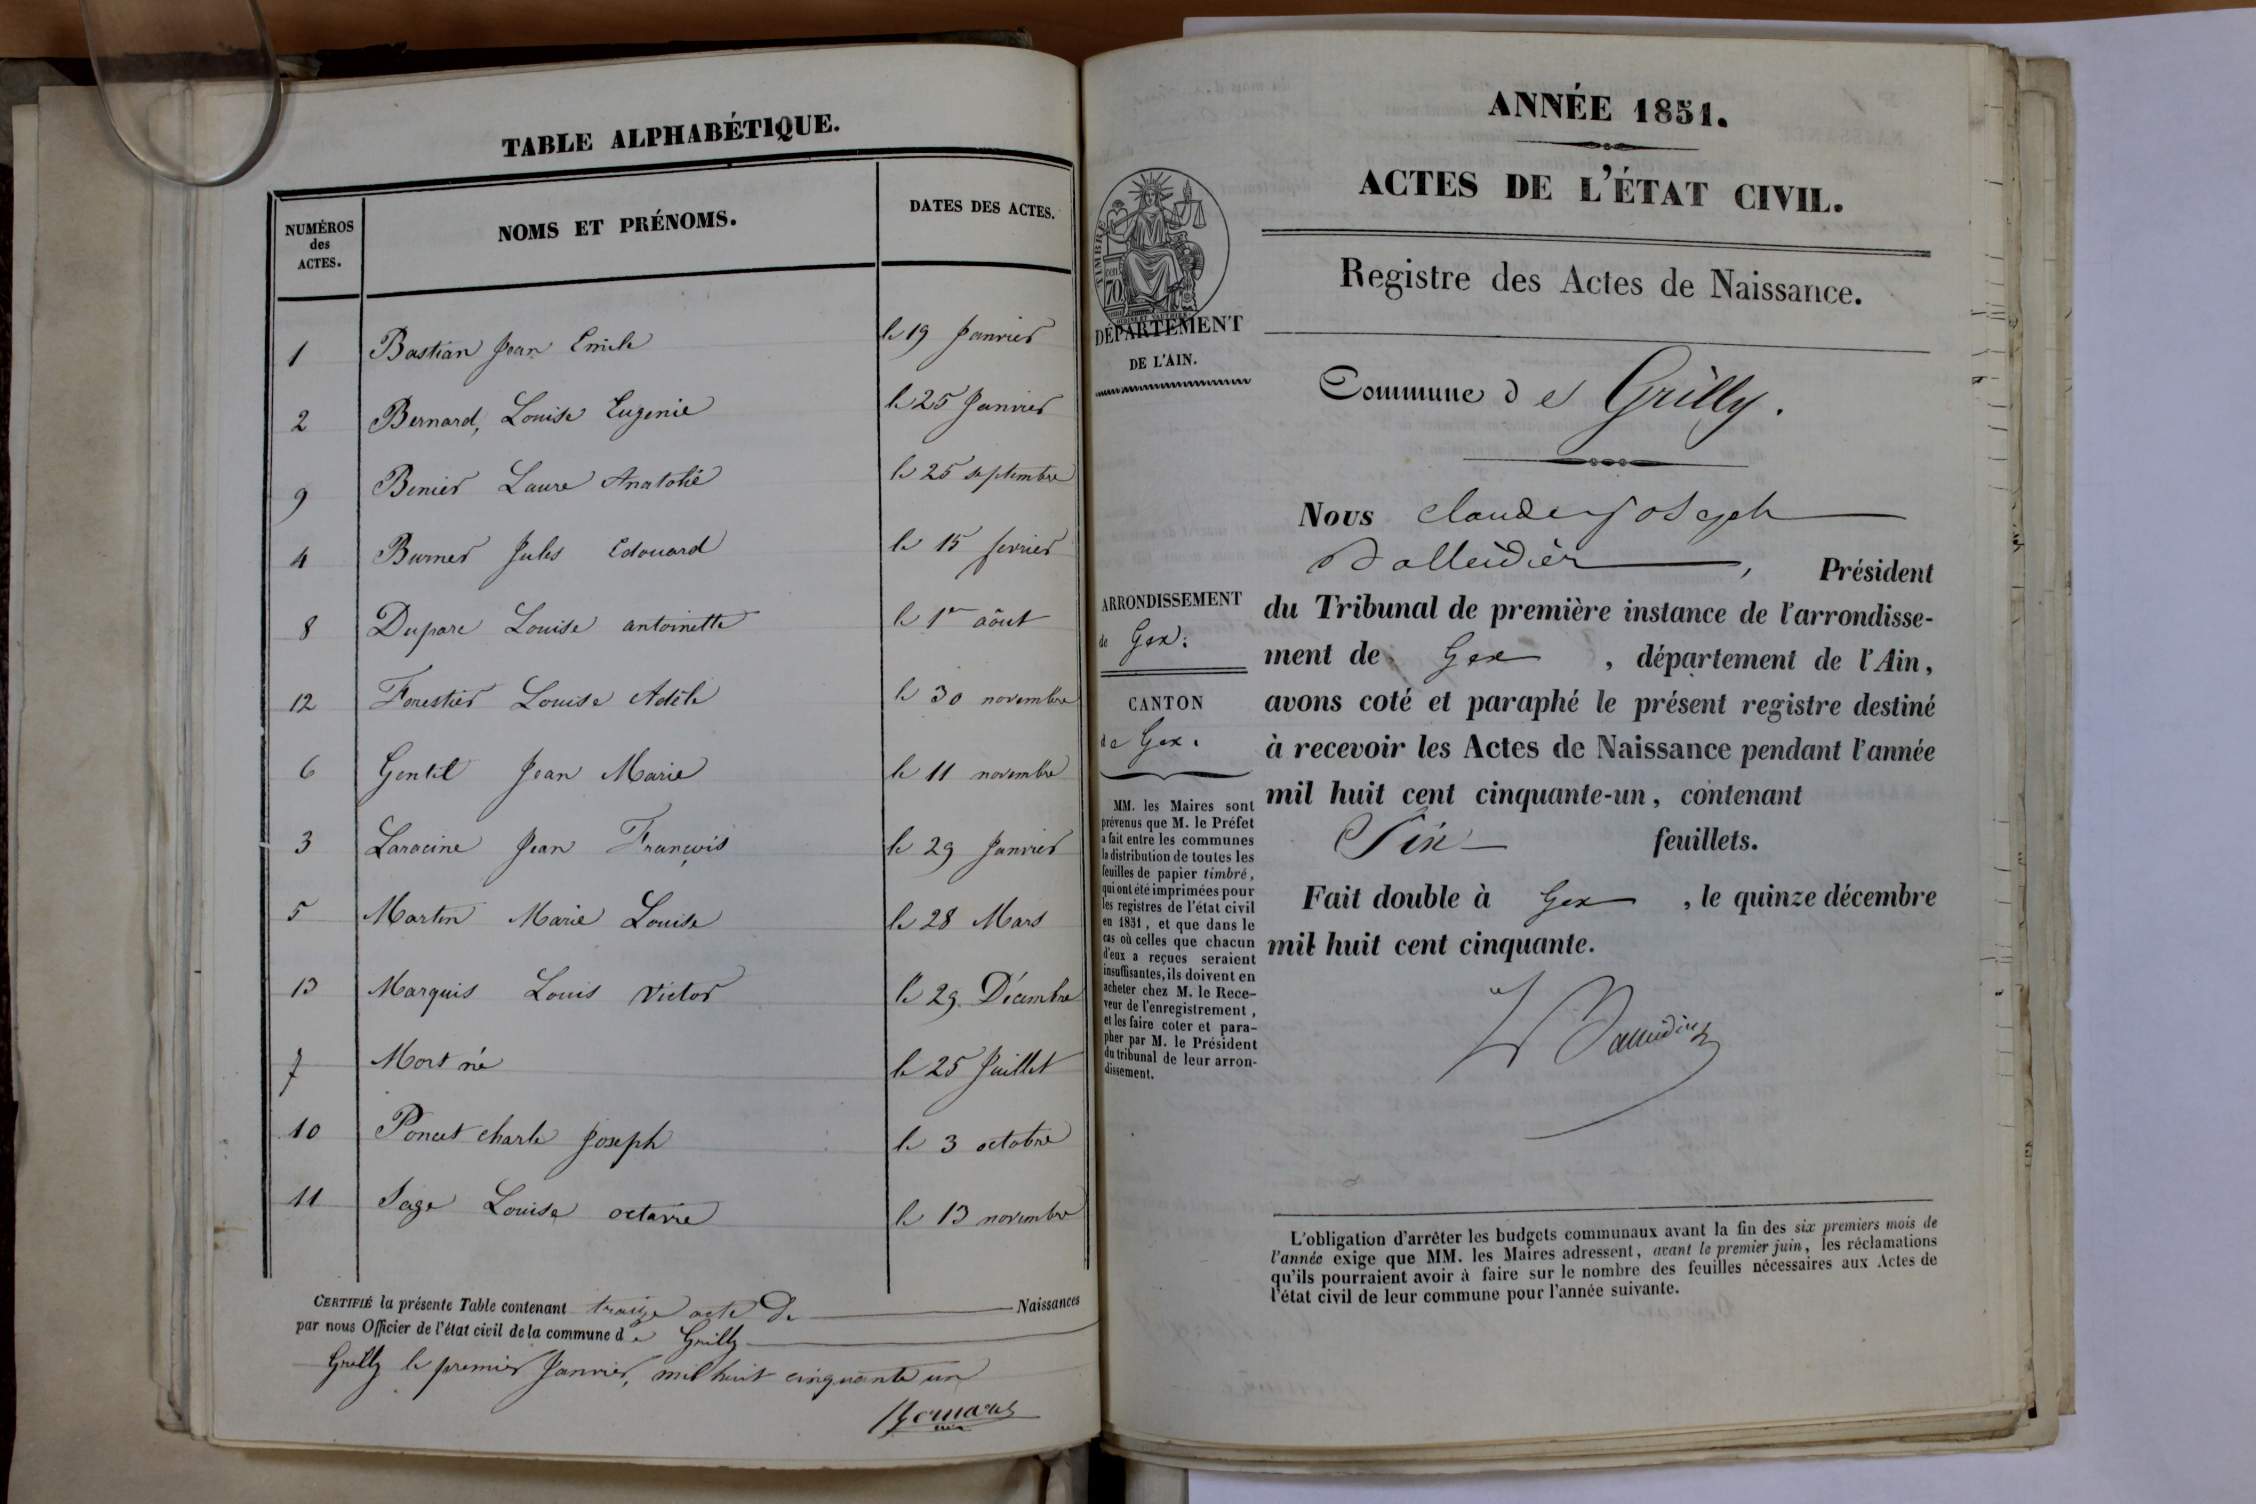 TABLE ALPHABÉTIQUE.
NUMÉROS des ACTES.
NOMS ET PRÉNOMS.
DATES DES ACTES.
1 Bastian Jean Emile le 19 Janvier
2 Bernard, Louise Eugenie le 25 Janvier
9 Benier Laure Anatolie le 25 septembre
4 Burner Jules Edouard le 15 fevrier
8 Duparc Louise antoinette le 1er aôut
12 Forestier Louise Adèle le 30 novembre
6 Gentil Jean Marie le 11 novembre
3 Laracine Jean François le 29 Janvier
5 Martin Marie Louise le 28 Mars
13 Marquis Louis Victor le 29 Décembre
7 Mort né le 25 Juillet
10 Poncet charle Joseph le 3 octobre
11 Sage Louise octavie le 13 novembre
CERTIFIÉ la présente Table contenant treize acte de Naissances
par nous Officier de l'état civil de la commune de Grilly
Grilly le premier Janvier, mil huit cinquante un
Bernard
ANNÉE 1851.
ACTES DE L'ÉTAT CIVIL.
Registre des Actes de Naissance.
TIMBRE
70
DÉPARTEMENT
DE L'AIN.
Commune de Grilly.
ARRONDISSEMENT
de Gex.
CANTON
de Gex.
MM. les Maires sont
prévenus que M. le Préfet
a fait entre les communes
la distribution de toutes les
feuilles de papier timbré,
qui ont été imprimées pour
les registres de l'état civil
en 1851, et que dans le
cas où celles que chacun
d'eux a reçues seraient
insuffisantes, ils doivent en
acheter chez M. le Rece-
veur de l'enregistrement,
et les faire coter et para-
pher par M. le Président
du tribunal de leur arron-
dissement.
Nous Claude joseph
, Président
du Tribunal de première instance de l'arrondisse-
ment de Gex , département de l'Ain,
avons coté et paraphé le présent registre destiné
à recevoir les Actes de Naissance pendant l'année
mil huit cent cinquante-un, contenant
Six feuillets.
Fait double à Gex , le quinze décembre
mil huit cent cinquante.
L'obligation d'arrêter les budgets communaux avant la fin des six premiers mois de
l'année exige que MM. les Maires adressent, avant le premier juin, les réclamations
qu'ils pourraient avoir à faire sur le nombre des feuilles nécessaires aux Actes de
l'état civil de leur commune pour l'année suivante.